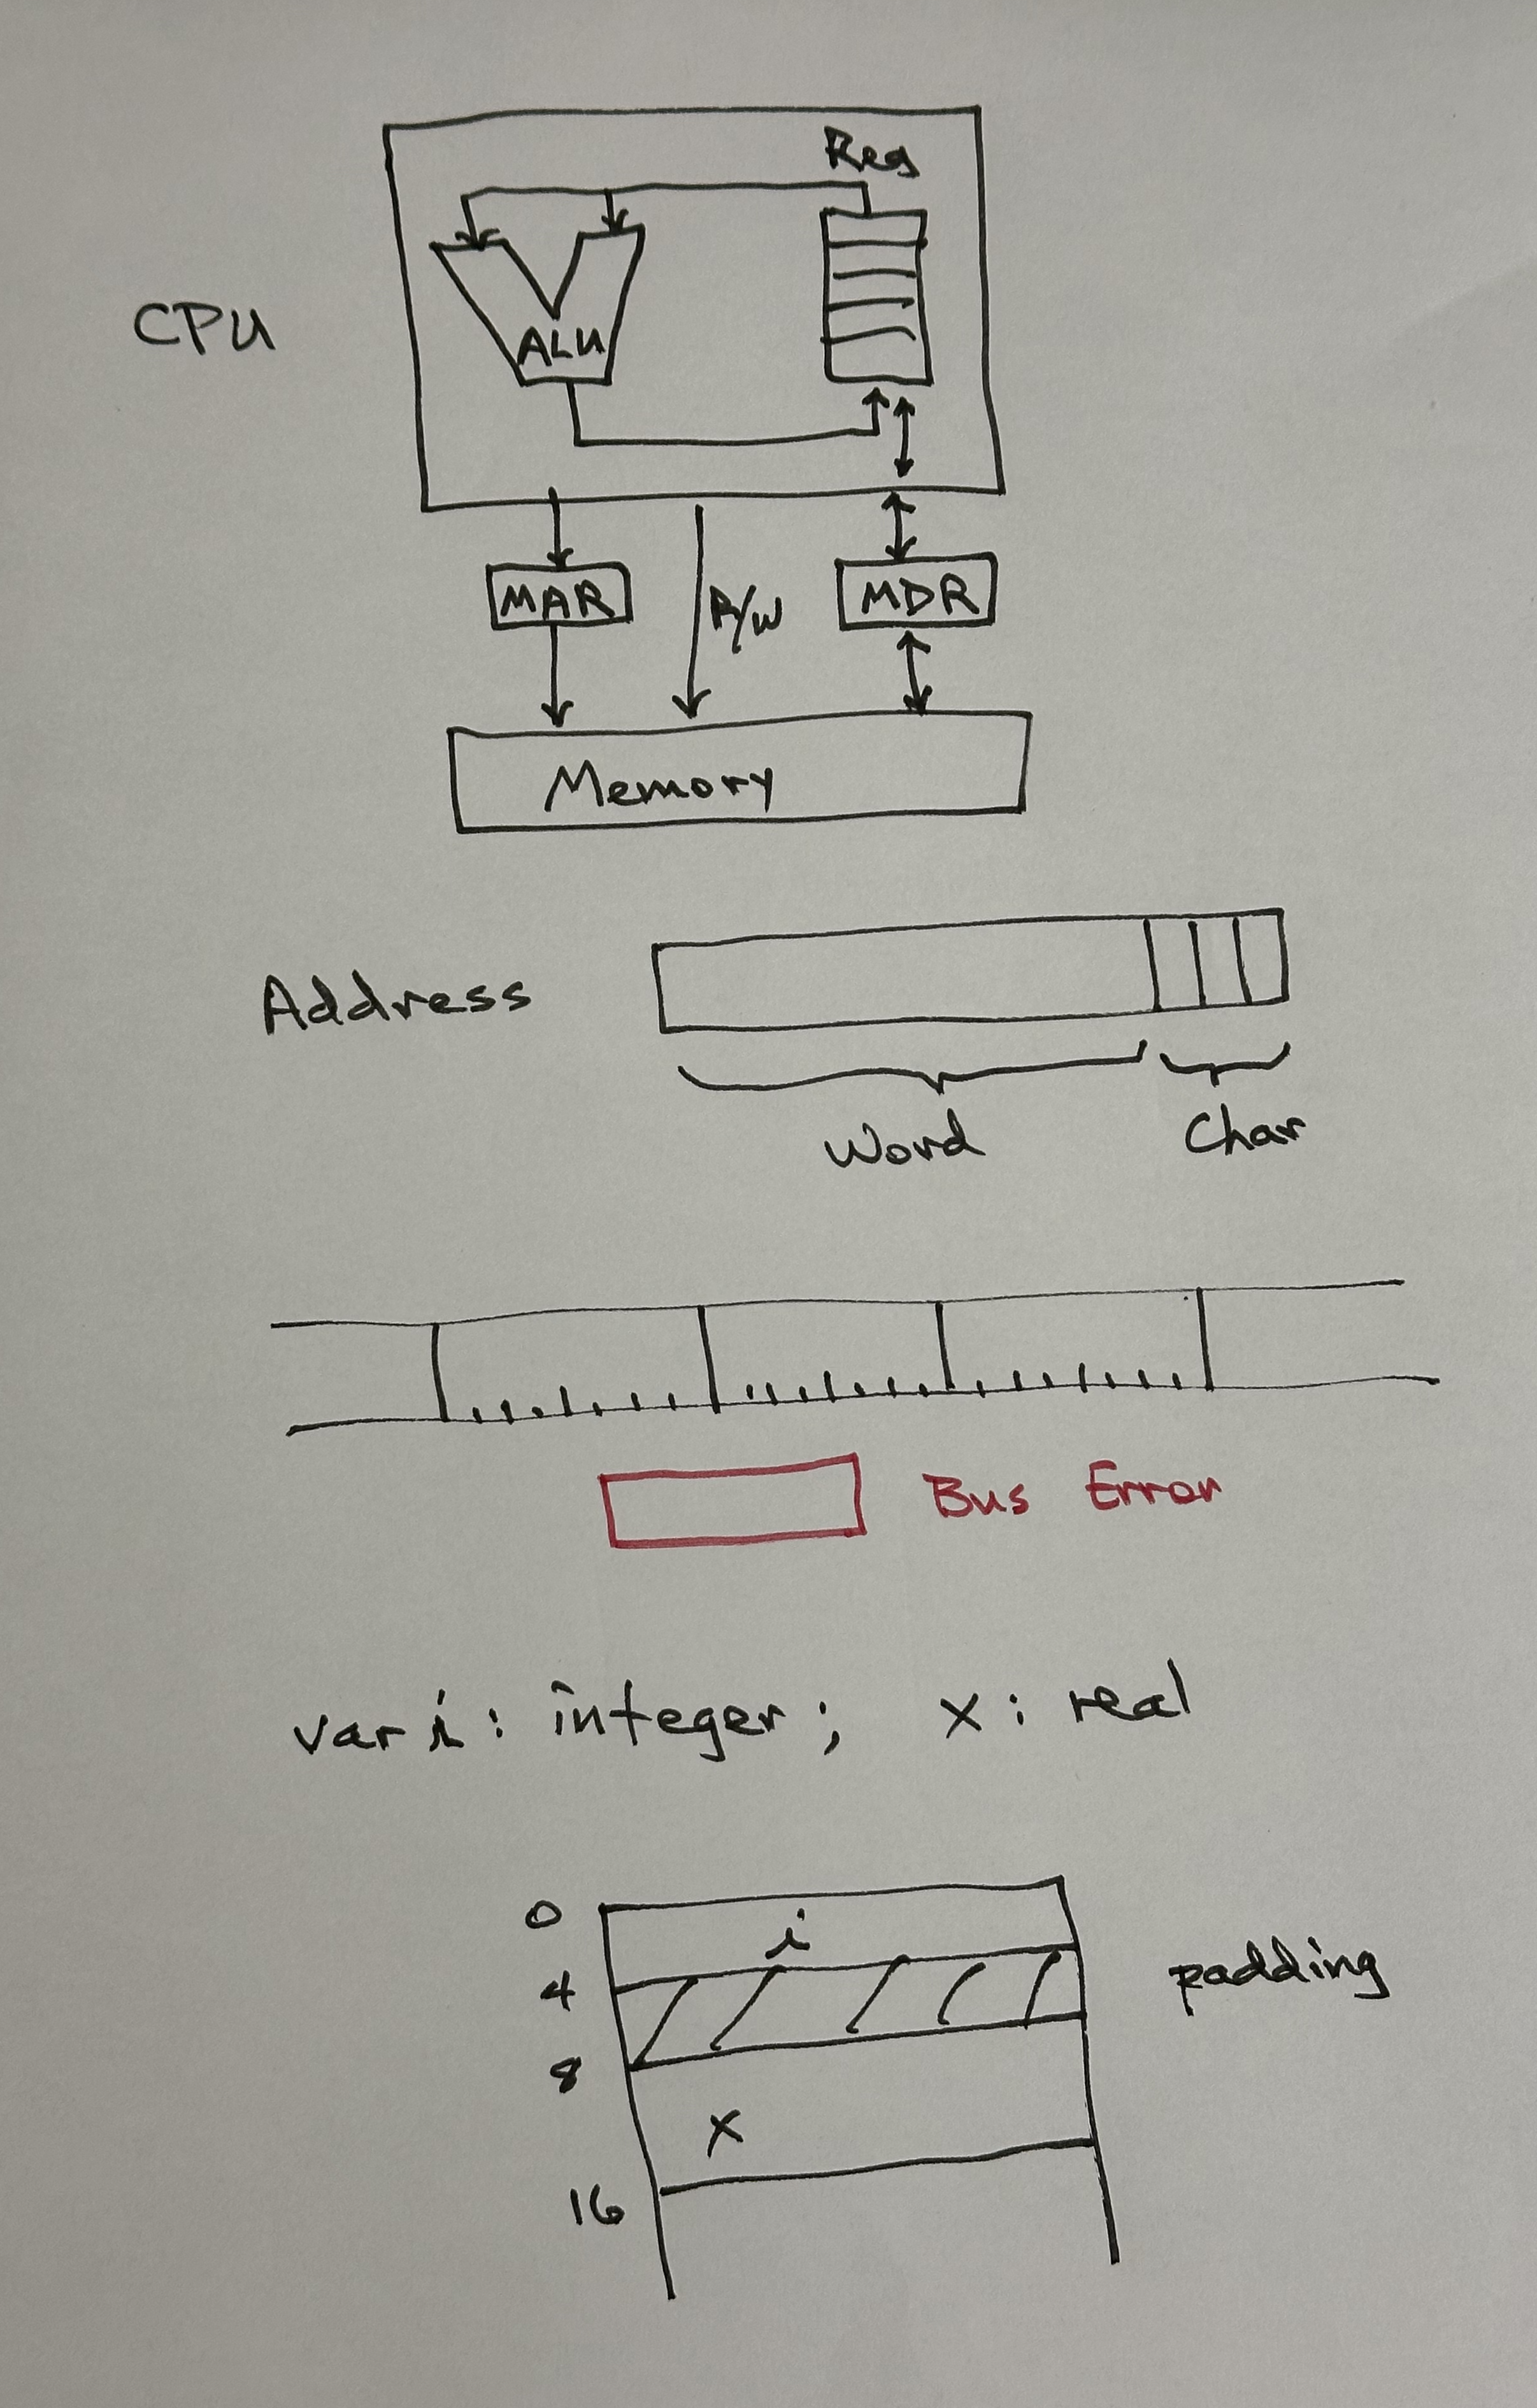 Reg
CPU
ALU
MAR
R/W
MDR
Memory
Address
Word
Char
Bus Error
var i : integer ; x : real
0
i
4
padding
8
x
16